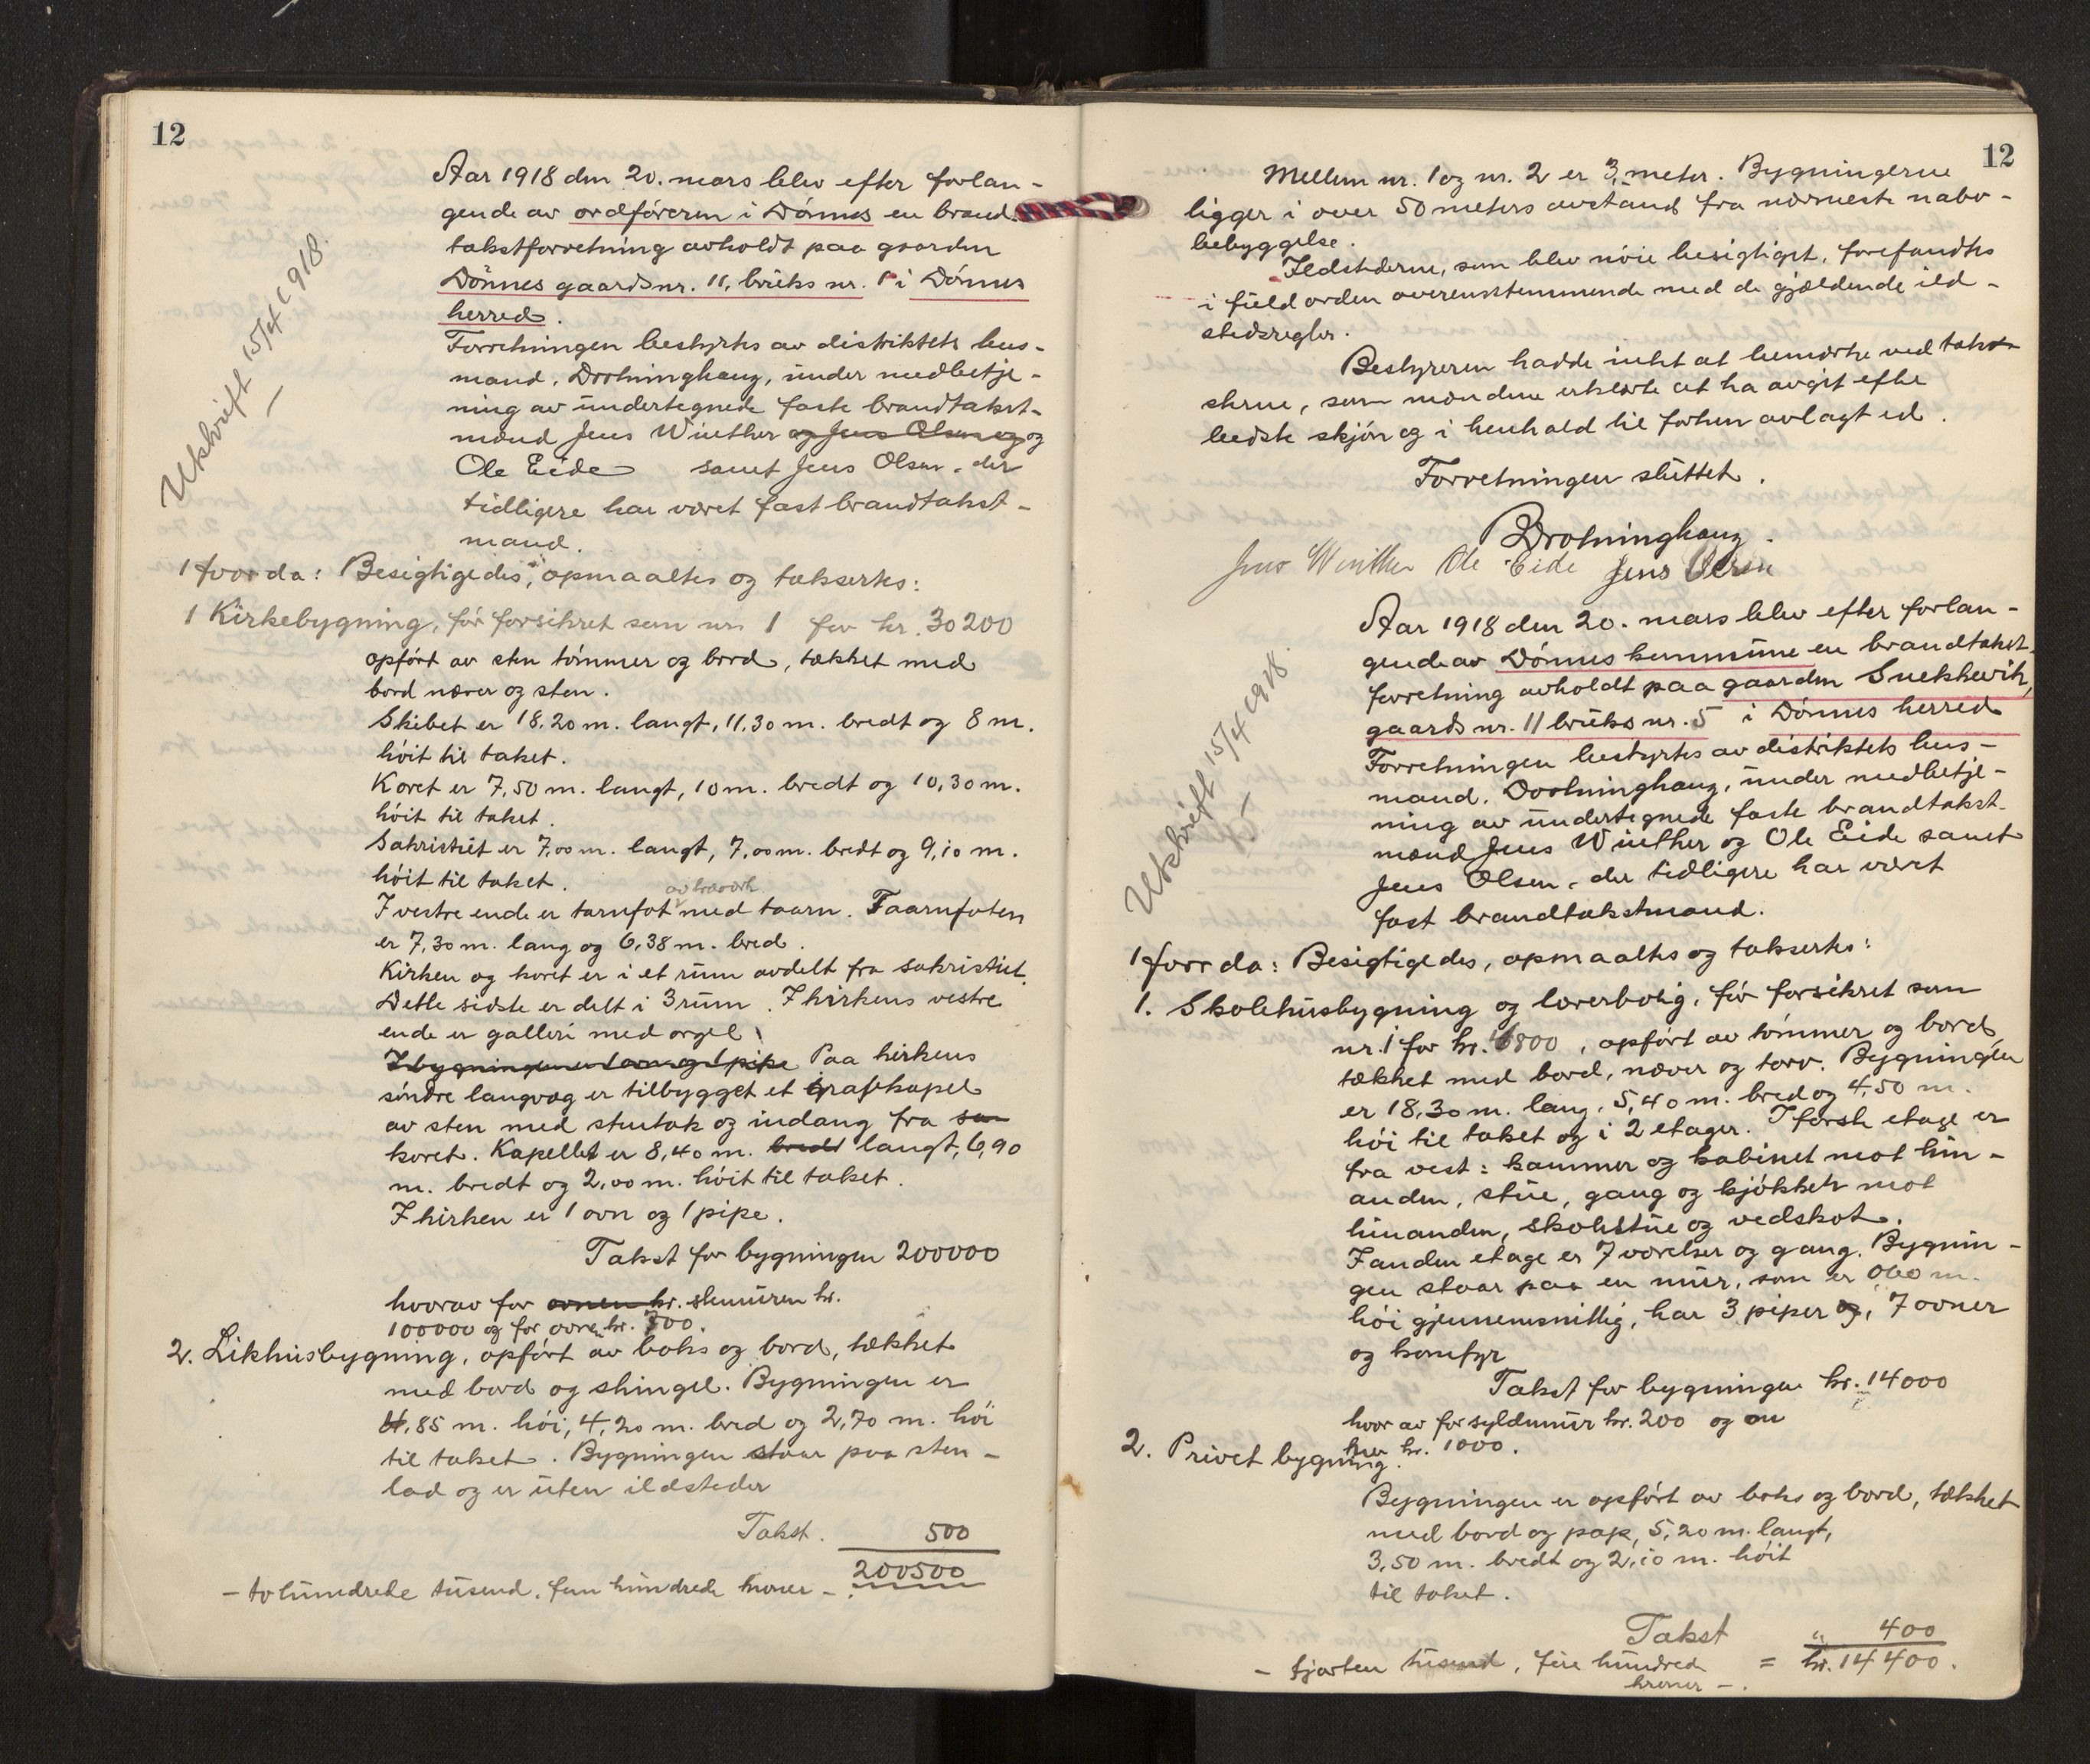 12
Utskrift 15/4 1918.
Aar 1918 den 20. mars blev efter forlan-
gende av ordföreren i Dönnes en brand-
takstforretning avholdt paa gaarden
Dönnes gaardsnr. 11, bruks nr. 1 i Dönnes
herred.
Forretningen bestyrtes av distriktets lens-
mand, Drotninghaug, under medbetje-
ning av undertegnede faste brandtakst-
mænd Jens Winther og Jens Olsen og og
Ole Eide samt Jens Olsen, der
tidligere har været fast brandtakst-
mand.
Hvorda: Besigtigedes, opmaaltes og taksertes:
1 Kirkebygning, för forsikret som nr. 1 for kr. 30200
opfört av sten tömmer og bord, tækket med
bord næver og sten.
Skibet er 18,20 m. langt, 11,30 m. bredt og 8 m.
höit til taket.
Koret er 7,50 m. langt, 10 m. bredt og 10,30 m.
höit til taket.
Sakristiet er 7,00 m. langt, 7,00 m. bredt og 9,10 m.
höit til taket.
av træverk
I vestre ende er tarnfot med taarn. Taarnfoten
er 7,30 m. lang og 6,38 m. bred.
Kirken og koret er i et rum avdelt fra sakristiet.
Dette sidste er delt i 3 rum. I kirkens vestre
ende er galleri med orgel.
I bygningen er 1 ovn og 1 pipe Paa kirkens
söndre langvæg er tilbygget et gravkapel
av sten med stentak og indang fra sa
koret. Kapellet er 8,40 m. bredt langt, 6,90
m. bredt og 2,00 m. höit til taket.
I kirken er 1 ovn og 1 pipe.
Takst for bygningen 200000
hvorav for ovnen kr. stenmuren kr.
100000 og for ovnen kr. 300.
2. Likhusbygning, opfört av boks og bord, tækket
med bord og shingel. Bygningen er
4,85 m. höi, 4,20 m. bred og 2,70 m. höi
til taket. Bygningen staar paa sten-
lad og er uten ildsteder
Takst. 500
200500
- to hundrede tusend, fem hundrede kroner -
12
Mellem nr. 1 og nr. 2 er 3 meter. Bygningerne
ligger i over 50 meters avstand fra nærmeste nabo-
bebyggelse.
Ildstederne, som blev nöie besigtiget, forefandtes
i fuld orden overenstemmende med de gjældende ild-
stedsregler.
Bestyreren hadde intet at bemærke ved takst
sterne, som mændene erklærte at ha avgit efter
bedste skjön og i henhold til forhen avlagt ed.
Forretningen sluttet.
Drotninghaug.
Jens Winther Ole Eide Jens Olsen
Utskrift 15/4 1918.
Aar 1918 den 20. mars blev efter forlan-
gende av Dönnes kommune en brandtakst-
forretning avholdt paa gaarden Snekkevik,
gaards nr. 11 bruks nr. 5 i Dönnes herred
Forretningen bestyrtes av distriktets lens-
mand, Drotninghaug, under medbetje-
ning av undertegnede faste brandtakst-
mænd Jens Winther og Ole Eide samt
Jens Olsen, der tidligere har været
fast brandtakstmand.
Hvorda: Besigtigedes, opmaaltes og taksertes:
1. Skolehusbygning og lærerbolig, för forsikret som
nr. 1 for kr. 6800, opfört av tömmer og bord,
tækket med bord, næver og torv. Bygningen
er 18,30 m. lang, 5,40 m. bred og 4,50 m.
höi til taket og i 2 etager. I förste etage er
fra vest: kammer og kabinet mot hin-
anden, stue, gang og kjökken mot
hinanden, skolestue og vedskot.
I anden etage er 7 værelser og gang. Bygnin-
gen staar paa en mur, som er 0,60 m.
höi gjennemsnitlig, har 3 piper og, 7 ovner
og komfyr
Takst for bygningen kr. 14000
hvor av for syldmur kr. 200 og
kr. 1000.
2. Privet bygning.
Bygningen er opfört av boks og bord, tækket
med bord og pap, 5,20 m. langt,
3,50 m. bredt og 2,10 m. höit
til taket.
Takst " 400
- fjorten tusend, fire hundrede = kr. 14400.
kroner -.